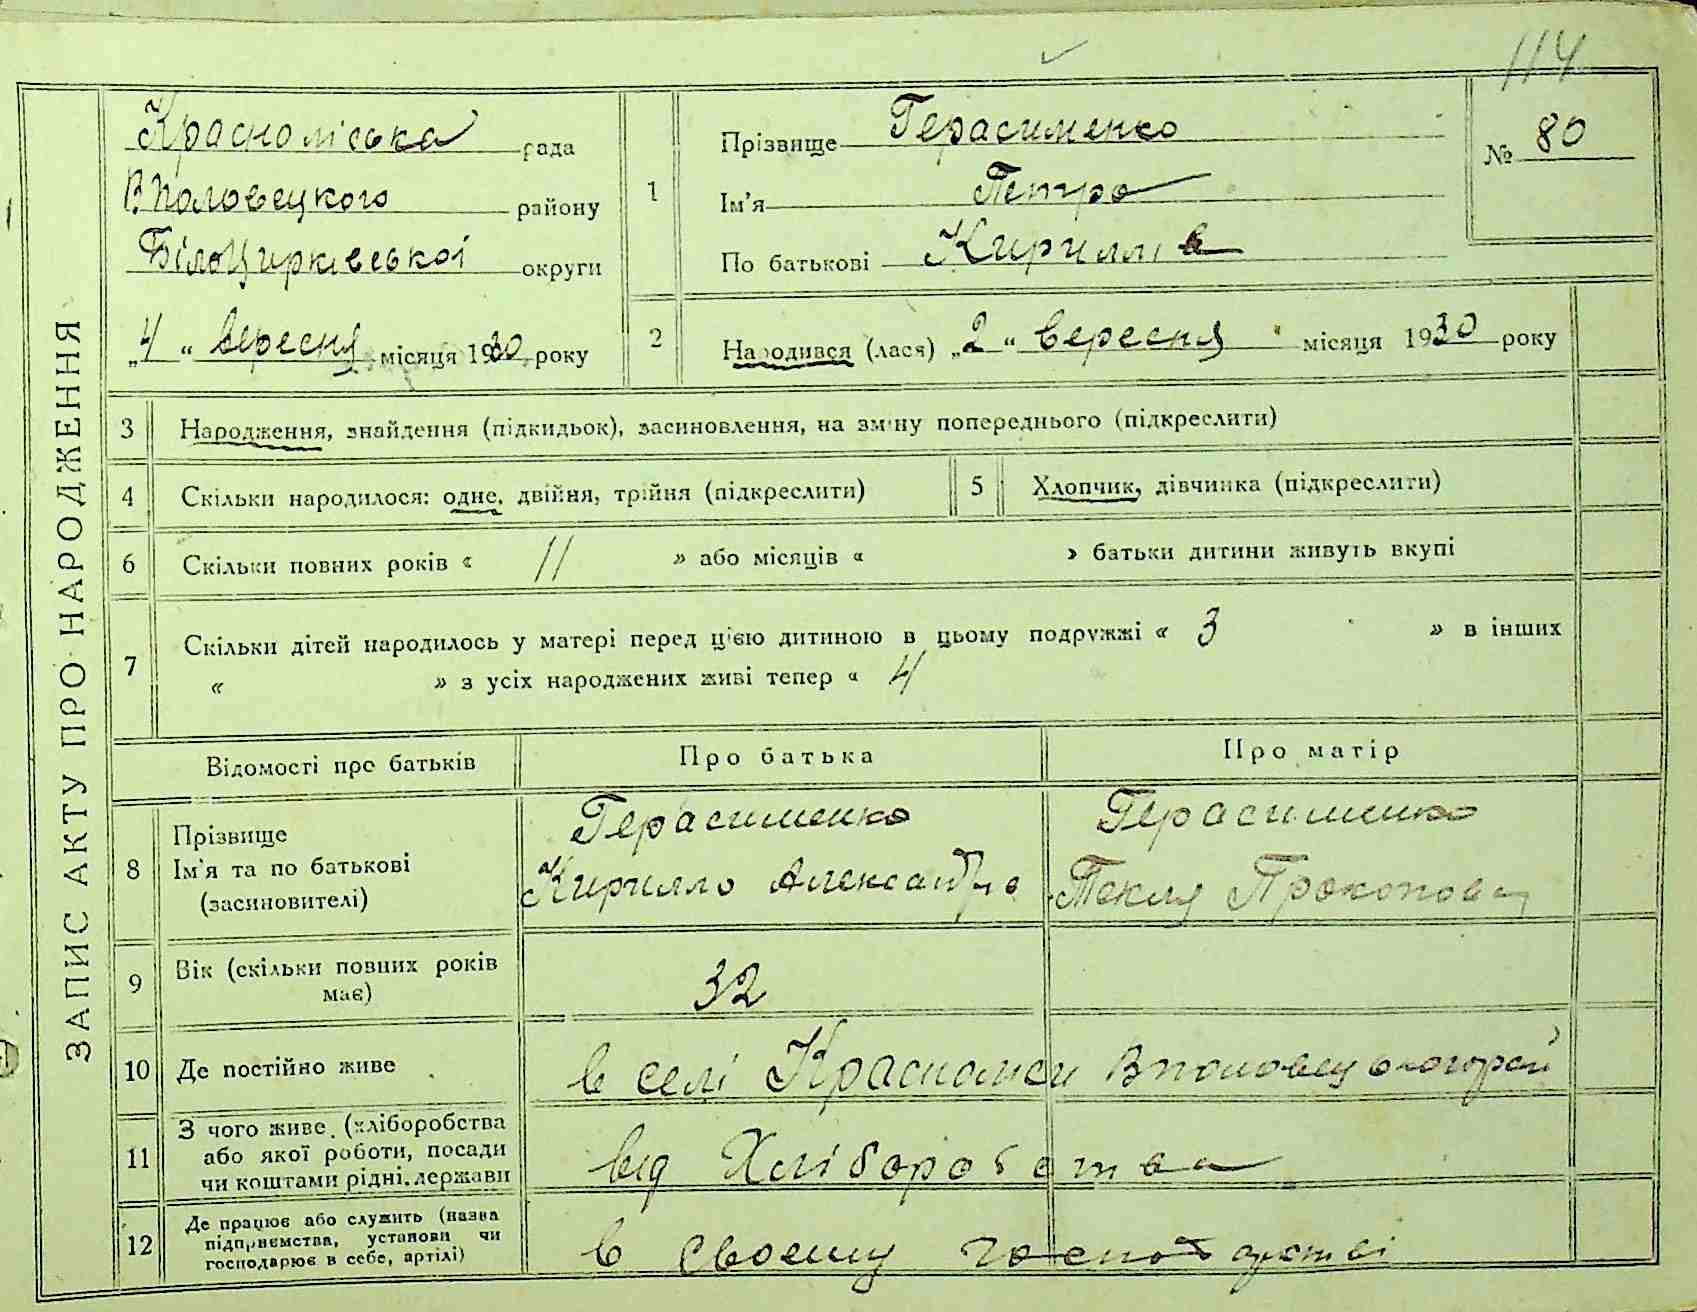 114
ЗАПИС АКТУ ПРО НАРОДЖЕННЯ
Красноліська рада
Вполовецкого району
Білоцирківської округи
„4“ вересня місяця 1930 року
1
Прізвище Герасименко
Ім'я Петро
По батькові Кириллів
№ 80
2
Народився (лася) „2“ вересня місяця 1930 року
3 Народження, знайдення (підкидьок), засиновлення, на зміну попереднього (підкреслити)
4 Скільки народилося: одне, двійня, трійня (підкреслити)
5 Хлопчик, дівчинка (підкреслити)
6 Скільки повних років « 11 » або місяців « » батьки дитини живуть вкупі
7 Скільки дітей народилось у матері перед цією дитиною в цьому подружжі « 3 » в інших
« » з усіх народжених живі тепер « 4
Відомості про батьків Про батька Про матір
8
Прізвище
Ім'я та по батькові
(засиновителі)
Герасименко
Кирилло
Герасименко
Текля
9 Вік (скільки повних років
має)
32
10 Де постійно живе
в селі
11 З чого живе (хліборобства
або якої роботи, посади
чи коштами рідні, держави
від Хліборобства
12 Де працює або служить (назва
підприємства, установи чи
господарює в себе, артілі)
в своему